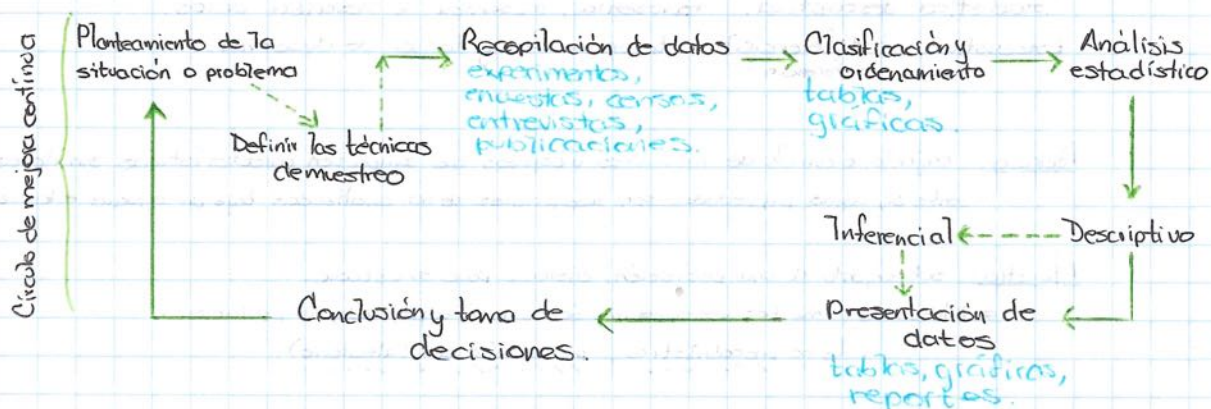 Círculo de mejora continua
Planteamiento de la
situación o problema
Definir las técnicas
de muestreo
Recopilación de datos
experimentos,
encuestas, censos,
entrevistas,
publicaciones.
Clasificación y
ordenamiento
tablas,
gráficas.
Análisis
estadístico
Inferencial
Descriptivo
Presentación de
datos
tablas, gráficas,
reportes.
Conclusión y toma de
decisiones.